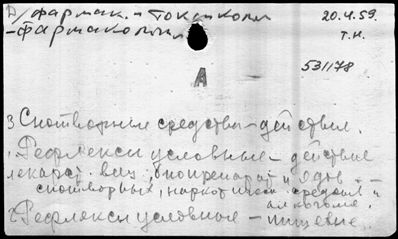 Д) фармак. и токсикол
20.4.59.
- фармакологии
т.н.
А
531178
3 Снотворные средства - действие.
1. Рефлексы условные - действие
лекарст. вещ., биопрепарат. и ядов --
снотворных, наркотическ. средств и
алкоголя.
2. Рефлексы условные - пищевые..